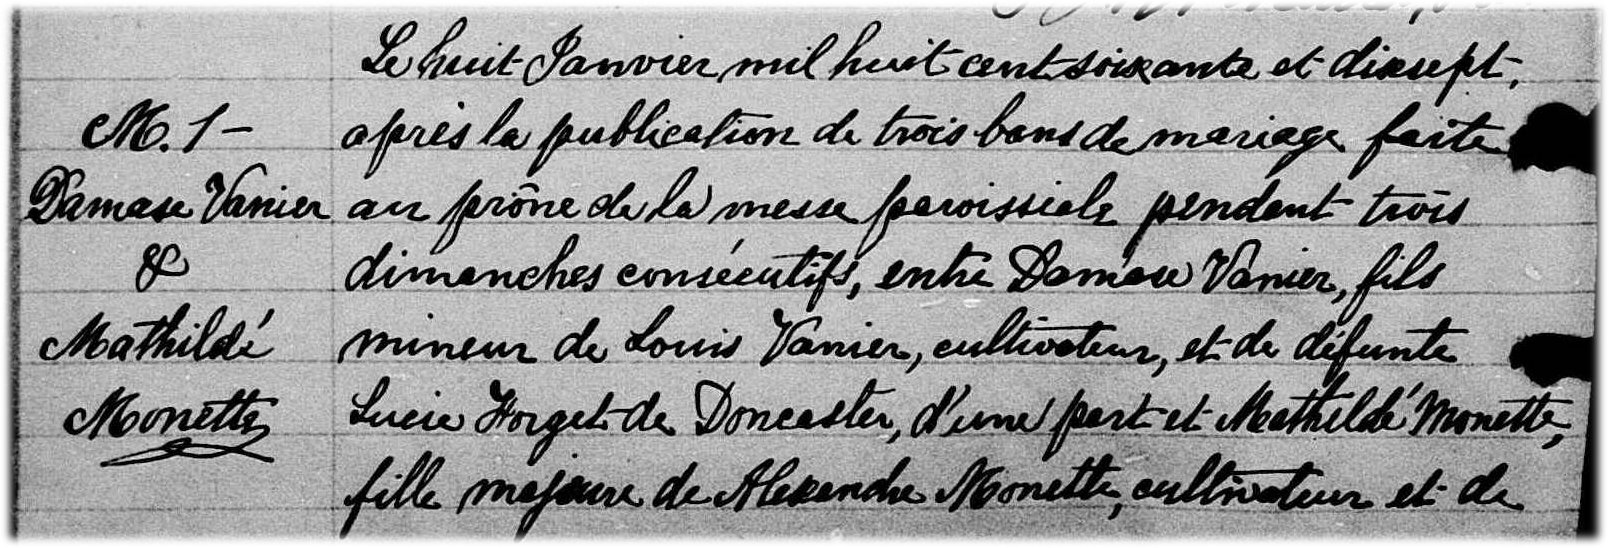 Le huit Janvier mil huit cent soixante et dixsept,
après la publication de trois bans de mariage faite
au prône de la messe paroissiale pendant trois
dimanches consécutifs, entre Damase Vanier, fils
mineur de Louis Vanier, cultivateur, et de défunte
Lucie Forget de Doncaster, d'une part et Mathildé Monette,
fille majeure de Alexandre Monette, cultivateur et de
M. 1 -
Damase Vanier
&
Mathildé
Monette